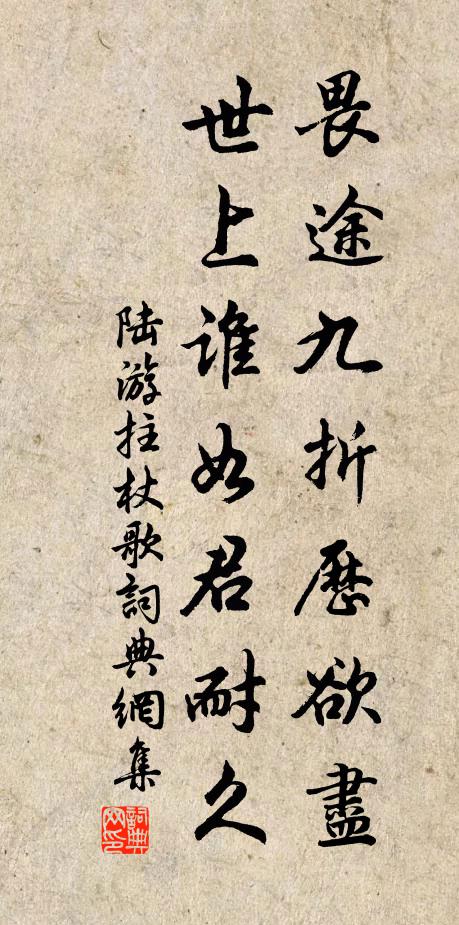 畏途九折歷欲盡
世上誰如君耐久
陸游拄杖歌詞典網集
詞典網印